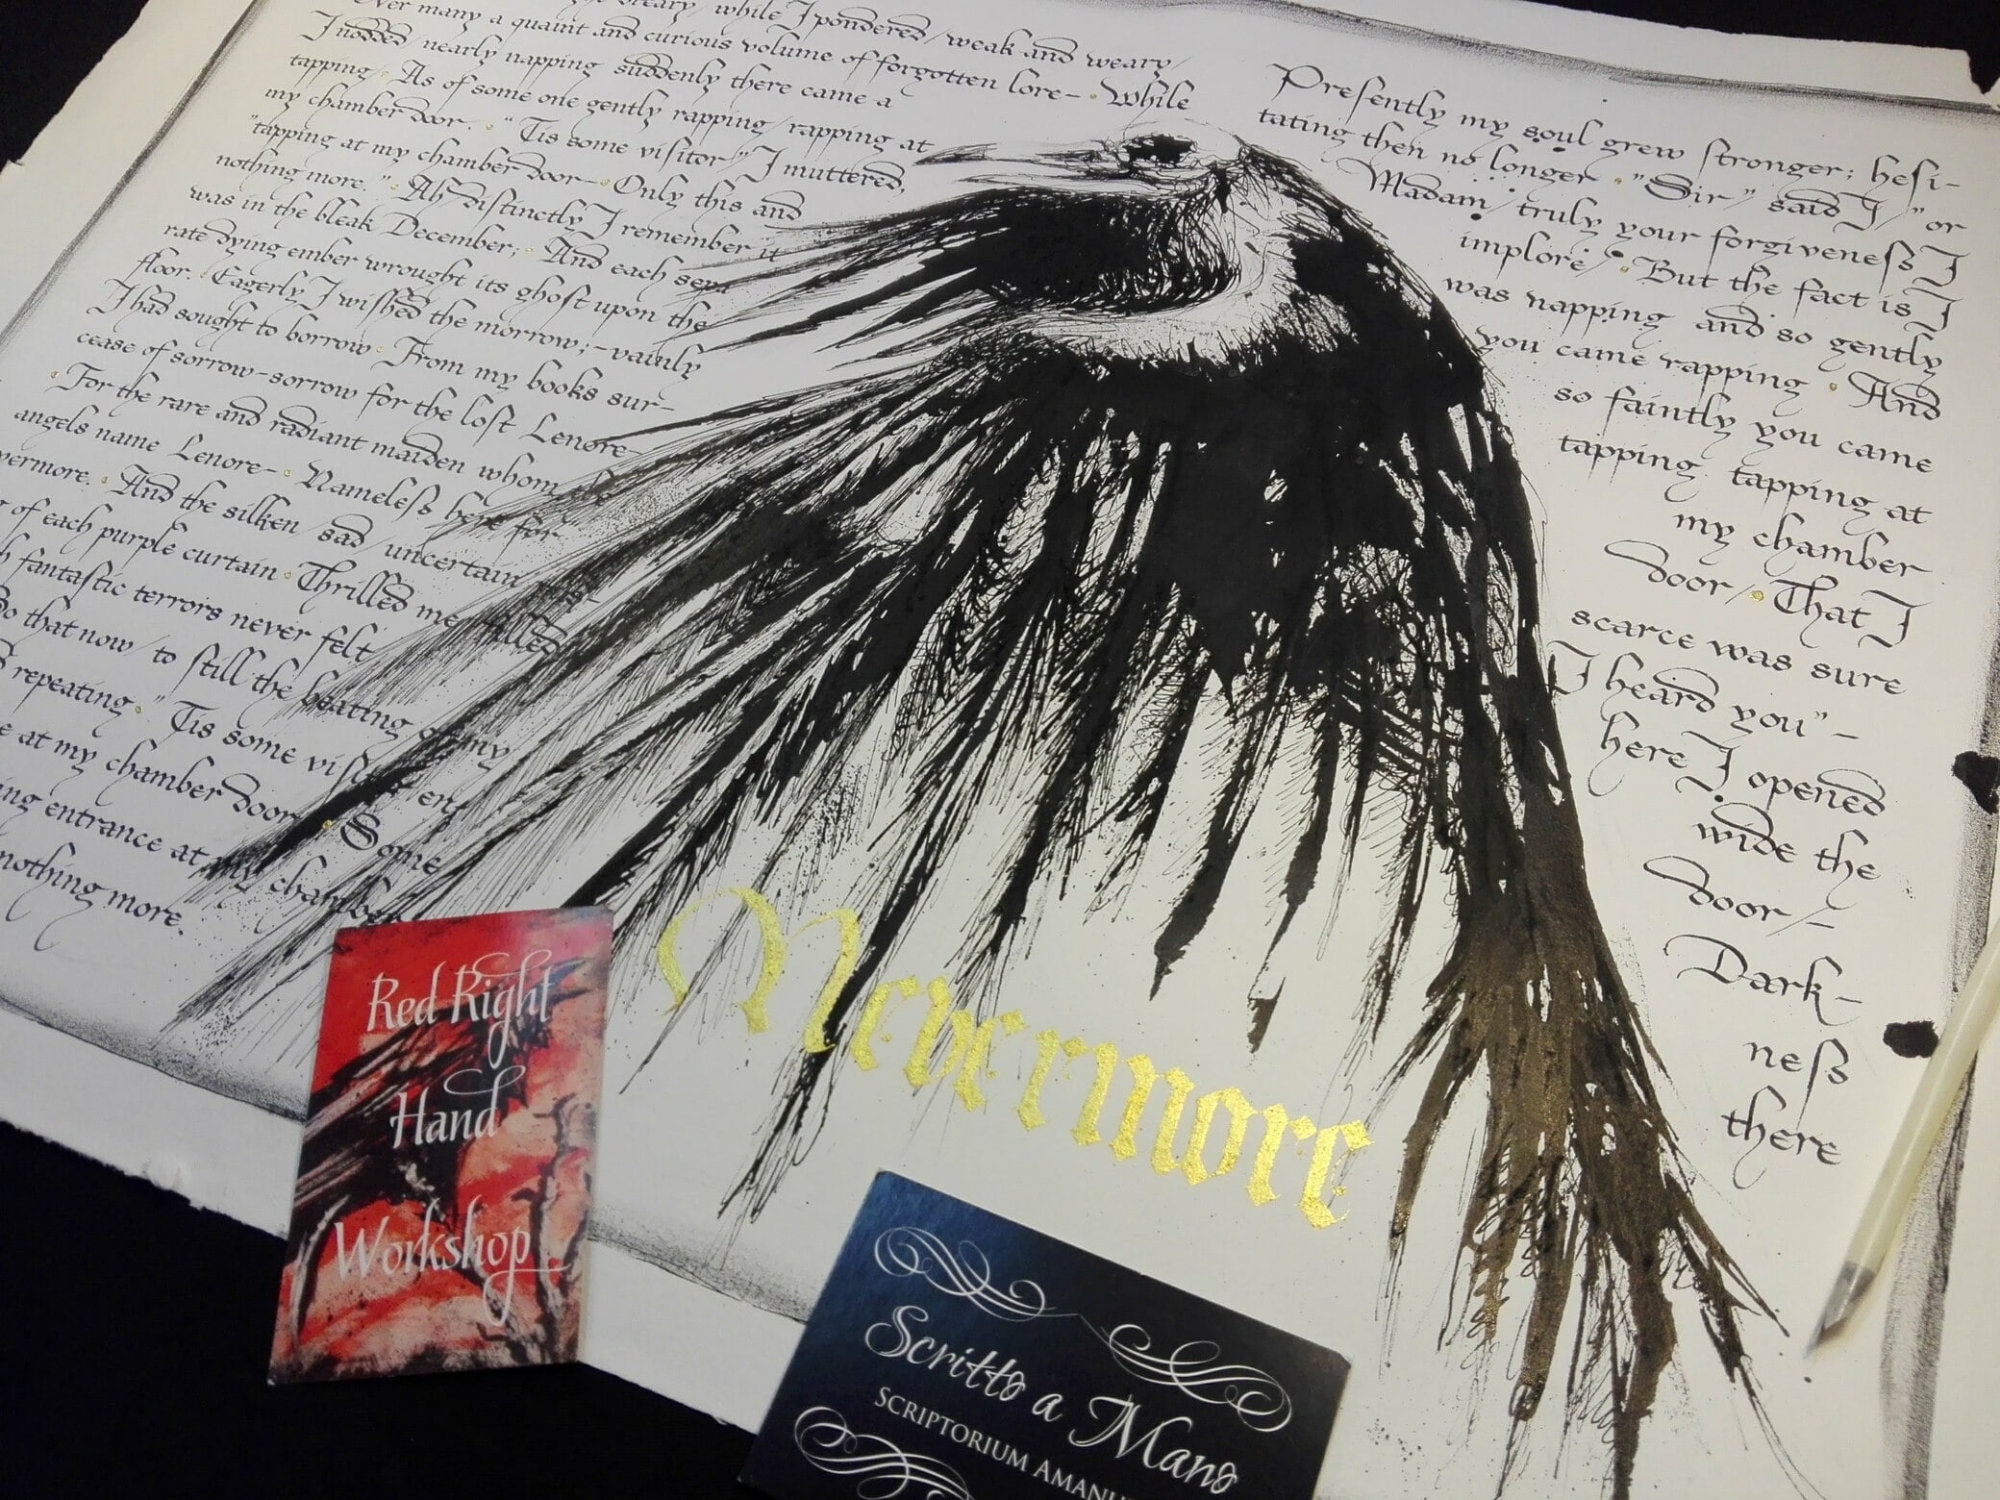 dreary, while I pondered, weak and weary,
Over many a quaint and curious volume of forgotten lore– While
I nodded, nearly napping suddenly there came a
tapping, As of some one gently rapping, rapping at
my chamber door. "Tis some visitor," I muttered,
"tapping at my chamber door– Only this and
nothing more." Ah, distinctly I remember it
was in the bleak December; And each sepa-
rate dying ember wrought its ghost upon the
floor. Eagerly I wished the morrow;–vainly
I had sought to borrow From my books sur-
cease of sorrow–sorrow for the lost Lenore–
For the rare and radiant maiden whom the
angels name Lenore– Nameless here for
vermore. And the silken, sad, uncertain rus-
of each purple curtain Thrilled me–filled
fantastic terrors never felt
So that now, to still the beating of my
repeating "Tis some
at my chamber door Some
ing entrance at my chamber
nothing more.
Presently my soul grew stronger; hesi-
tating then no longer "Sir," said I, "or
Madam, truly your forgiveness I
implore, But the fact is I
was napping and so gently
you came rapping And
so faintly you came
tapping, tapping at
my chamber
door, That I
scarce was sure
I heard you"–
here I opened
wide the
door,–
Dark–
ness
there
Nevermore
Red Right
Hand
Workshop
Scritto a Mano
SCRIPTORIUM